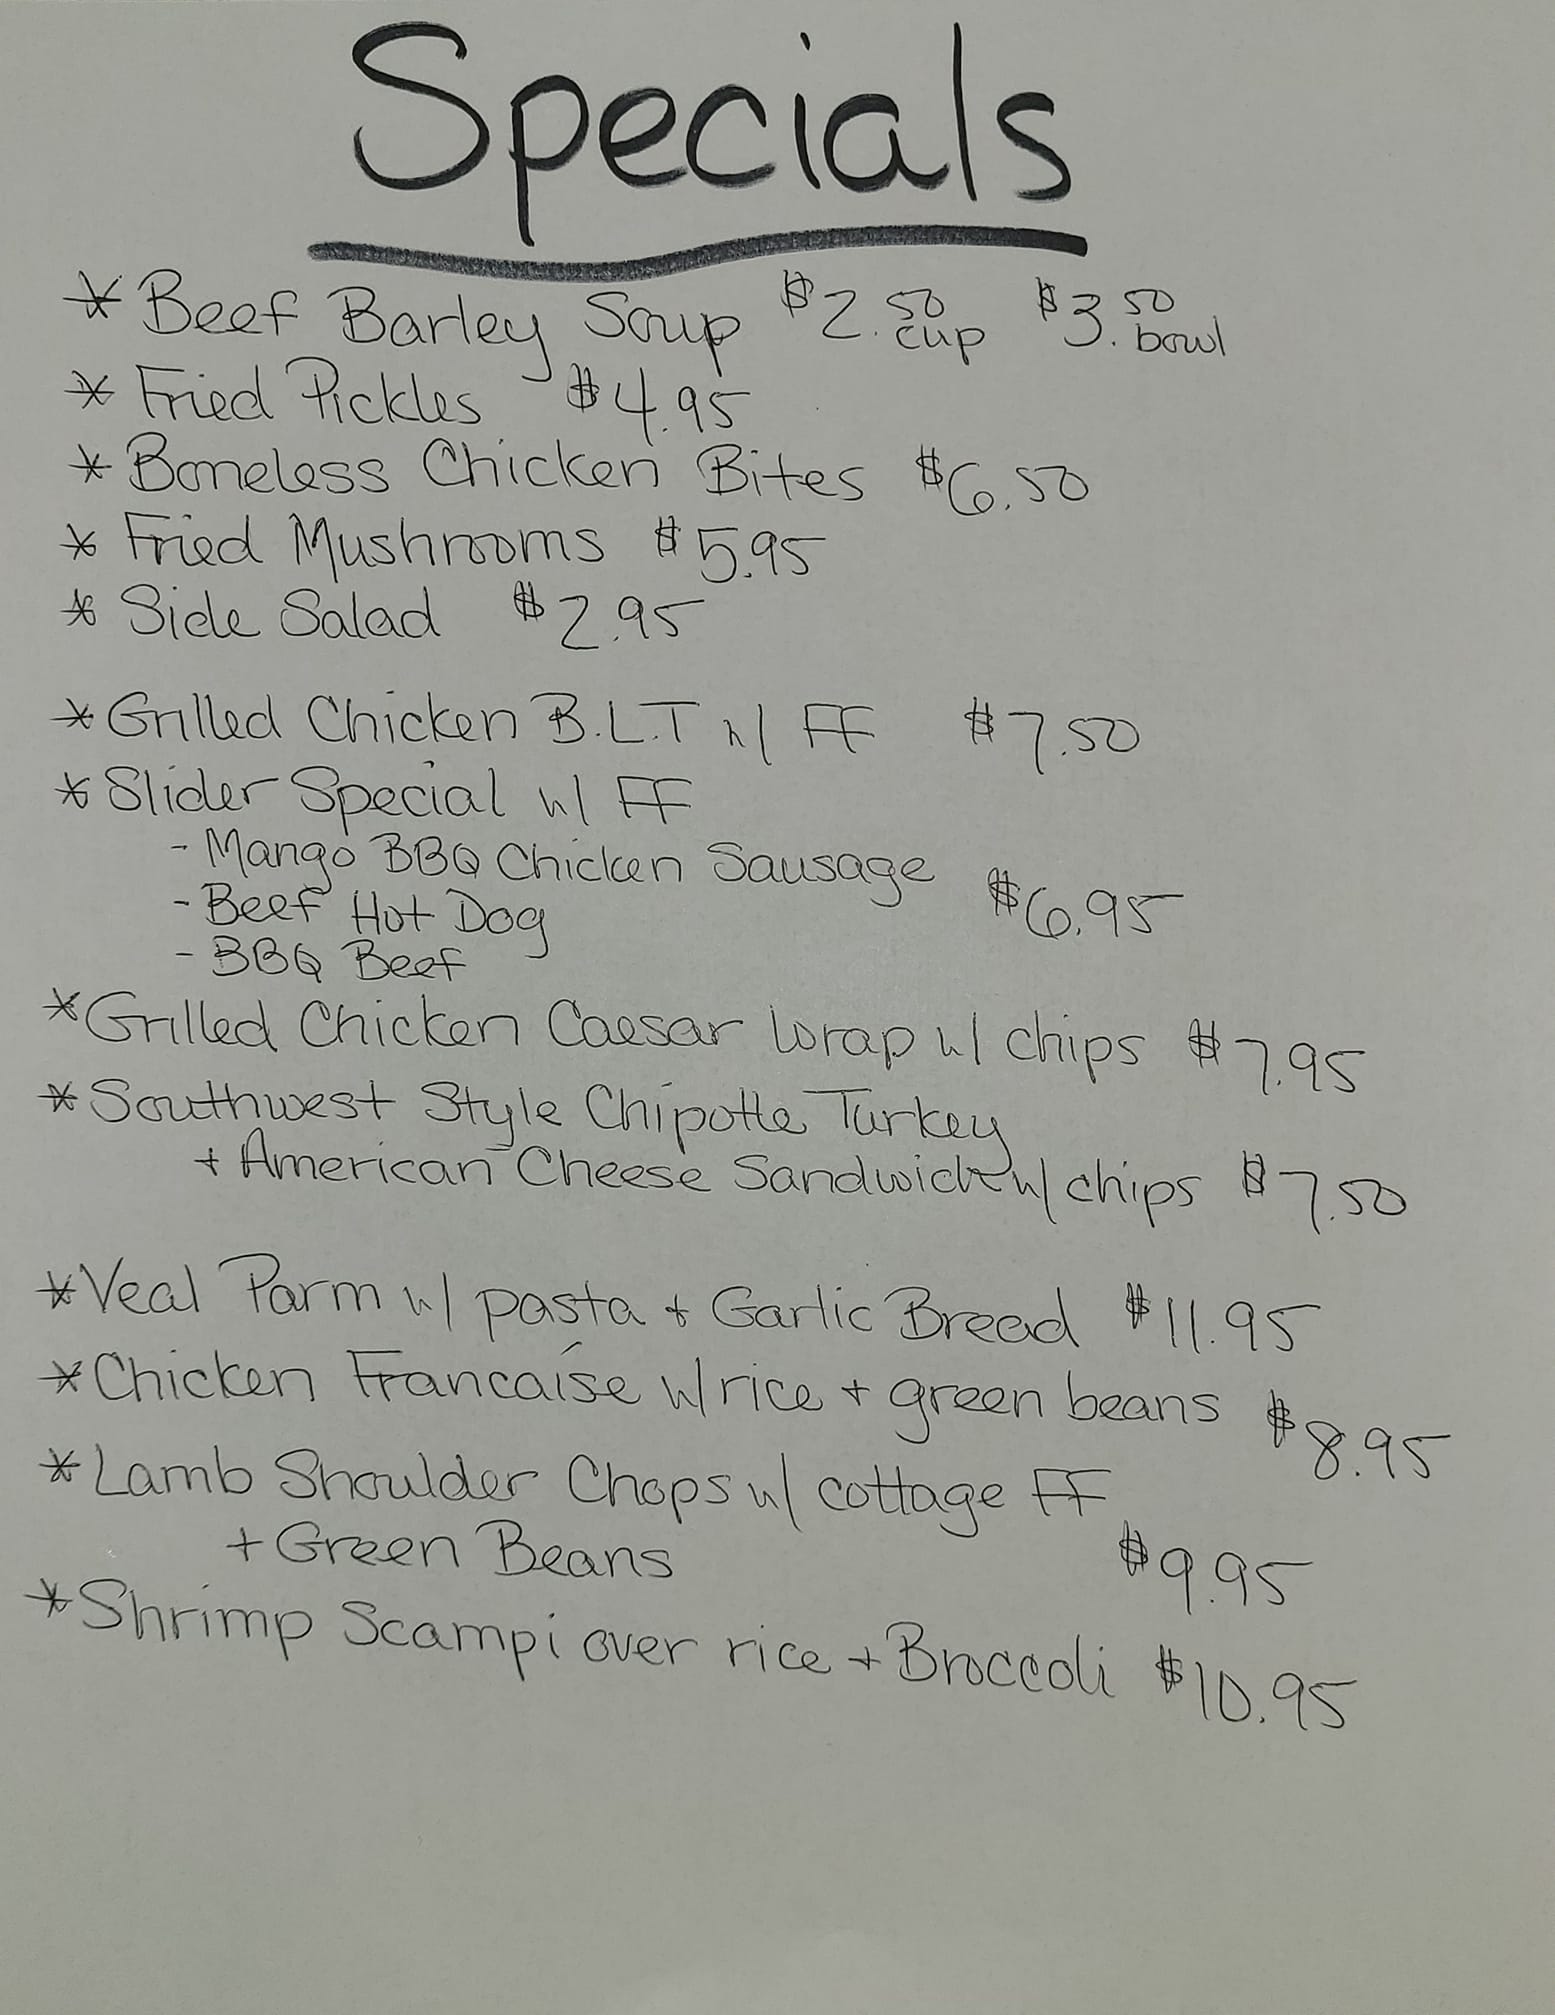 Specials
* Beef Barley Soup $2.50 cup $3.50 bowl
* Fried Pickles $4.95
* Boneless Chicken Bites $6.50
* Fried Mushrooms $5.95
* Side Salad $2.95
* Grilled Chicken B.L.T w/ FF $7.50
* Slider Special w/ FF
- Mango BBQ Chicken Sausage
- Beef Hot Dog $6.95
- BBQ Beef
* Grilled Chicken Caesar Wrap w/ chips $7.95
* Southwest Style Chipotle Turkey
+ American Cheese Sandwich w/ chips $7.50
* Veal Parm w/ pasta + Garlic Bread $11.95
* Chicken Francaise w/ rice + green beans $8.95
* Lamb Shoulder Chops w/ cottage FF
+ Green Beans $9.95
* Shrimp Scampi over rice + Broccoli $10.95